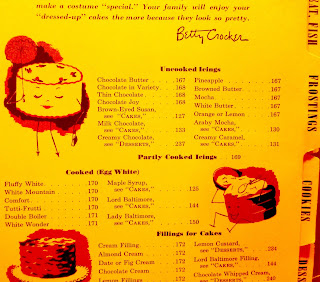 make a costume "special." Your family will enjoy your
"dressed-up" cakes the more because they look so pretty.
Betty Crocker
Uncooked Icings
Chocolate Butter 167
Chocolate in Variety 168
Thin Chocolate 168
Chocolate Joy 168
Brown-Eyed Susan,
see "CAKES," 127
Milk Chocolate,
see "CAKES," 123
Creamy Chocolate,
see "DESSERTS," 237
Pineapple 167
Browned Butter 167
Mocha 167
White Butter 167
Orange or Lemon 167
Araby Mocha,
see "CAKES," 130
Creamy Caramel,
see "CAKES," 131
Partly Cooked Icings 169
Cooked (Egg White)
Fluffy White 170
White Mountain 170
Comfort 170
Tutti-Frutti 170
Double Boiler 171
White Wonder 171
Maple Syrup,
see "CAKES," 125
Lord Baltimore,
see "CAKES," 144
Lady Baltimore,
see "CAKES," 150
Fillings for Cakes
Cream Filling 172
Almond Cream 172
Date or Fig Cream 172
Chocolate Cream 172
Lemon Fillings 172
Lemon Custard,
see "DESSERTS," 224
Lord Baltimore Filling,
see "CAKES," 144
Chocolate Whipped Cream,
see "DESSERTS," 240
EAT, FISH
FROSTINGS
COOKIES
DESS